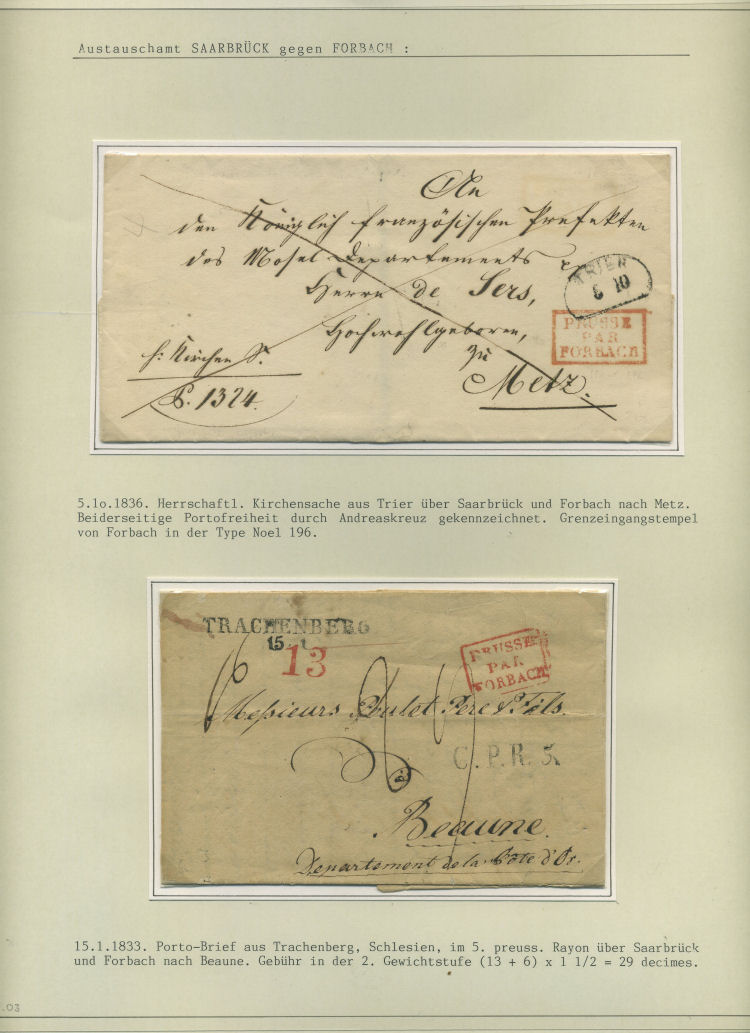 Austauschamt SAARBRÜCK gegen FORBACH :
An
den Königlich französischen Prefekten
des Mosel Departements
Herrn de Sers,
Hochwohlgeboren,
zu
Metz.
h: Kirchen S.
1324.
TRIER
5 10
PRUSSE
PAR
FORBACH
5.1o.1836. Herrschaftl. Kirchensache aus Trier über Saarbrück und Forbach nach Metz.
Beiderseitige Portofreiheit durch Andreaskreuz gekennzeichnet. Grenzeingangstempel
von Forbach in der Type Noel 196.
TRACHENBERG
15 1
13
PRUSSE
PAR
FORBACH
Messieurs Poulet Pere & Fils.
C.P.R. 5.
à
Beaune.
Departement de la Côte d'Or.
15.1.1833. Porto-Brief aus Trachenberg, Schlesien, im 5. preuss. Rayon über Saarbrück
und Forbach nach Beaune. Gebühr in der 2. Gewichtstufe (13 + 6) x 1 1/2 = 29 decimes.
.03